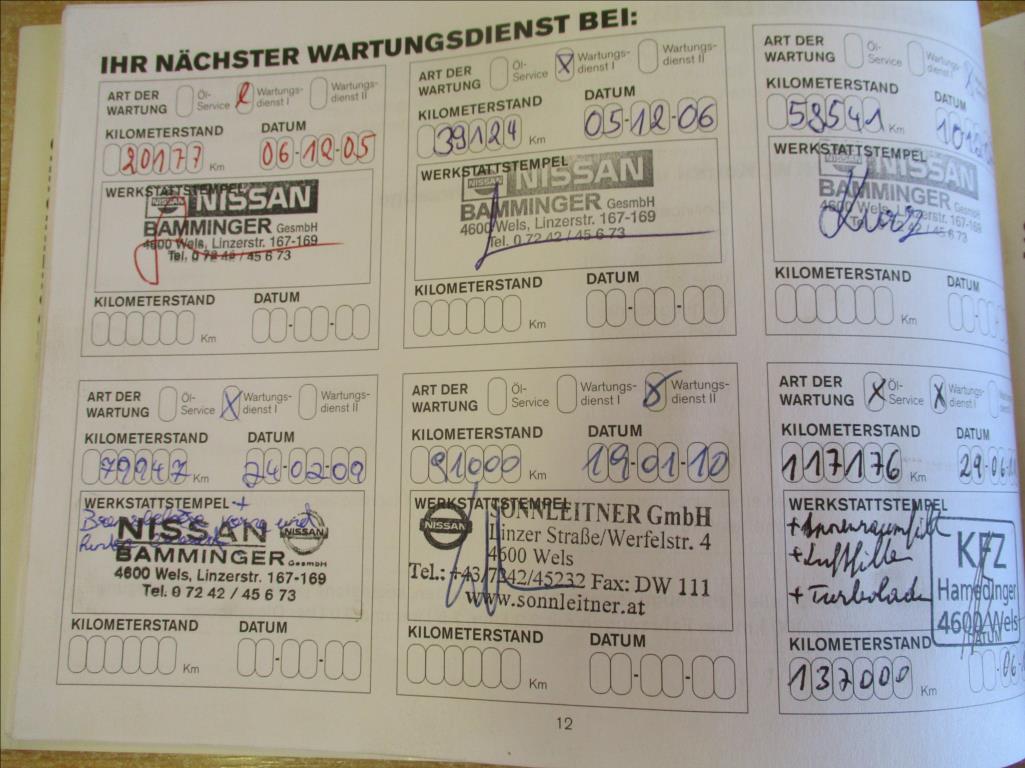 IHR NÄCHSTER WARTUNGSDIENST BEI:
ART DER WARTUNG Öl-Service Wartungs-dienst I Wartungs-dienst II
KILOMETERSTAND DATUM
20177 Km 06-12-05
WERKSTATTSTEMPEL
NISSAN NISSAN
BAMMINGER GesmbH
4600 Wels, Linzerstr. 167-169
Tel. 0 72 42 / 45 6 73
KILOMETERSTAND DATUM
Km
ART DER WARTUNG Öl-Service X Wartungs-dienst I Wartungs-dienst II
KILOMETERSTAND DATUM
39124 Km 05-12-06
WERKSTATTSTEMPEL
NISSAN NISSAN
BAMMINGER GesmbH
4600 Wels, Linzerstr. 167-169
Tel. 0 72 42 / 45 6 73
KILOMETERSTAND DATUM
Km
ART DER WARTUNG Öl-Service
KILOMETERSTAND DATUM
58541 Km
WERKSTATTSTEMPEL
NISSAN NISSAN
BAMMINGER GesmbH
4600 Wels, Linzerstr. 167-169
Tel. 0 72 42 / 45 6 73
KILOMETERSTAND DATUM
Km
ART DER WARTUNG Öl-Service X Wartungs-dienst I Wartungs-dienst II
KILOMETERSTAND DATUM
79947 Km 24-02-09
WERKSTATTSTEMPEL +
und
NISSAN NISSAN
BAMMINGER GesmbH
4600 Wels, Linzerstr. 167-169
Tel. 0 72 42 / 45 6 73
KILOMETERSTAND DATUM
Km
ART DER WARTUNG Öl-Service Wartungs-dienst I Wartungs-dienst II
KILOMETERSTAND DATUM
91000 Km 19-01-10
WERKSTATTSTEMPEL
NISSAN SONNLEITNER GmbH
Linzer Straße/Werfelstr. 4
4600 Wels
Tel.: +43/7242/45232 Fax: DW 111
www.sonnleitner.at
KILOMETERSTAND DATUM
Km
ART DER WARTUNG X Öl-Service X Wartungs-dienst I
KILOMETERSTAND DATUM
117176 Km
WERKSTATTSTEMPEL
+ Innenraumfilt
+ Luftfilter
+ Turbolader
KFZ
Hamedinger
4600 Wels
KILOMETERSTAND DATUM
137000 Km
12